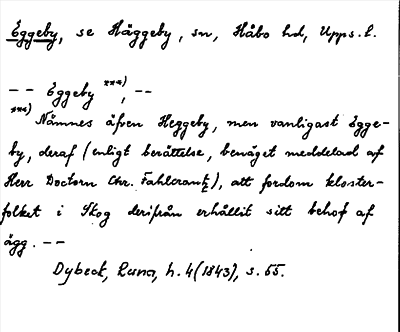 Eggeby, se Häggeby, sn, Håbo hd, Upps. l.
-- Eggeby ***), --
***) Nämnes äfven Heggeby, men vanligast Egge-
by, deraf (enligt berättelse, benäget meddelad af
Herr Doctorn Chr. Fahlcrantz), att fordom kloster-
folket i Skog derifrån erhållit sitt behof af
ägg. --
Dybeck, Runa, h. 4 (1843), s. 55.